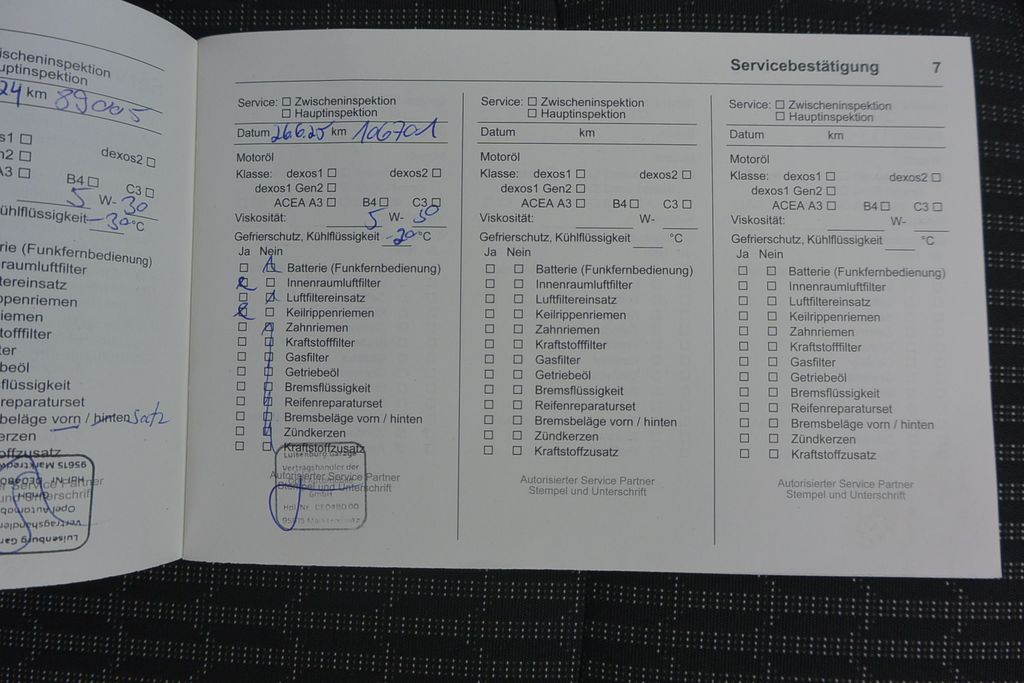 ischeninspektion
uptinspektion
24 km 89005
s1 ☐
dexos2 ☐
n2 ☐
A3 ☐ B4 ☐ C3 ☐
5 W- 30
ühlflüssigkeit -30 °C
rie (Funkfernbedienung)
raumluftfilter
tereinsatz
ppenriemen
iemen
tofffilter
ter
beöl
sflüssigkeit
reparaturset
beläge vorn / hinten Satz
erzen
offzusatz
Luisenburg Gar
Vertragshändler
Opel Automob
GmbH
95615 Marktredwitz
Servicebestätigung 7
Service: ☐ Zwischeninspektion
☐ Hauptinspektion
Datum 26.6.25 km 106701
Motoröl
Klasse: dexos1 ☐ dexos2 ☐
dexos1 Gen2 ☐
ACEA A3 ☐ B4 ☐ C3 ☐
Viskosität: 5 W- 30
Gefrierschutz, Kühlflüssigkeit °C
Ja Nein
Batterie (Funkfernbedienung)
Innenraumluftfilter
Luftfiltereinsatz
Keilrippenriemen
Zahnriemen
Kraftstofffilter
Gasfilter
Getriebeöl
Bremsflüssigkeit
Reifenreparaturset
Bremsbeläge vorn / hinten
Zündkerzen
Kraftstoffzusatz
Luisenburg Garage
Vertragshändler der
Autorisierter Service Partner
Stempel und Unterschrift
GmbH
Service: ☐ Zwischeninspektion
☐ Hauptinspektion
Datum km
Motoröl
Klasse: dexos1 ☐ dexos2 ☐
dexos1 Gen2 ☐
ACEA A3 ☐ B4 ☐ C3 ☐
Viskosität: W-
Gefrierschutz, Kühlflüssigkeit °C
Ja Nein
☐ ☐ Batterie (Funkfernbedienung)
☐ ☐ Innenraumluftfilter
☐ ☐ Luftfiltereinsatz
☐ ☐ Keilrippenriemen
☐ ☐ Zahnriemen
☐ ☐ Kraftstofffilter
☐ ☐ Gasfilter
☐ ☐ Getriebeöl
☐ ☐ Bremsflüssigkeit
☐ ☐ Reifenreparaturset
☐ ☐ Bremsbeläge vorn / hinten
☐ ☐ Zündkerzen
☐ ☐ Kraftstoffzusatz
Autorisierter Service Partner
Stempel und Unterschrift
Service: ☐ Zwischeninspektion
☐ Hauptinspektion
Datum km
Motoröl
Klasse: dexos1 ☐ dexos2 ☐
dexos1 Gen2 ☐
ACEA A3 ☐ B4 ☐ C3 ☐
Viskosität: W-
Gefrierschutz, Kühlflüssigkeit °C
Ja Nein
☐ ☐ Batterie (Funkfernbedienung)
☐ ☐ Innenraumluftfilter
☐ ☐ Luftfiltereinsatz
☐ ☐ Keilrippenriemen
☐ ☐ Zahnriemen
☐ ☐ Kraftstofffilter
☐ ☐ Gasfilter
☐ ☐ Getriebeöl
☐ ☐ Bremsflüssigkeit
☐ ☐ Reifenreparaturset
☐ ☐ Bremsbeläge vorn / hinten
☐ ☐ Zündkerzen
☐ ☐ Kraftstoffzusatz
Autorisierter Service Partner
Stempel und Unterschrift